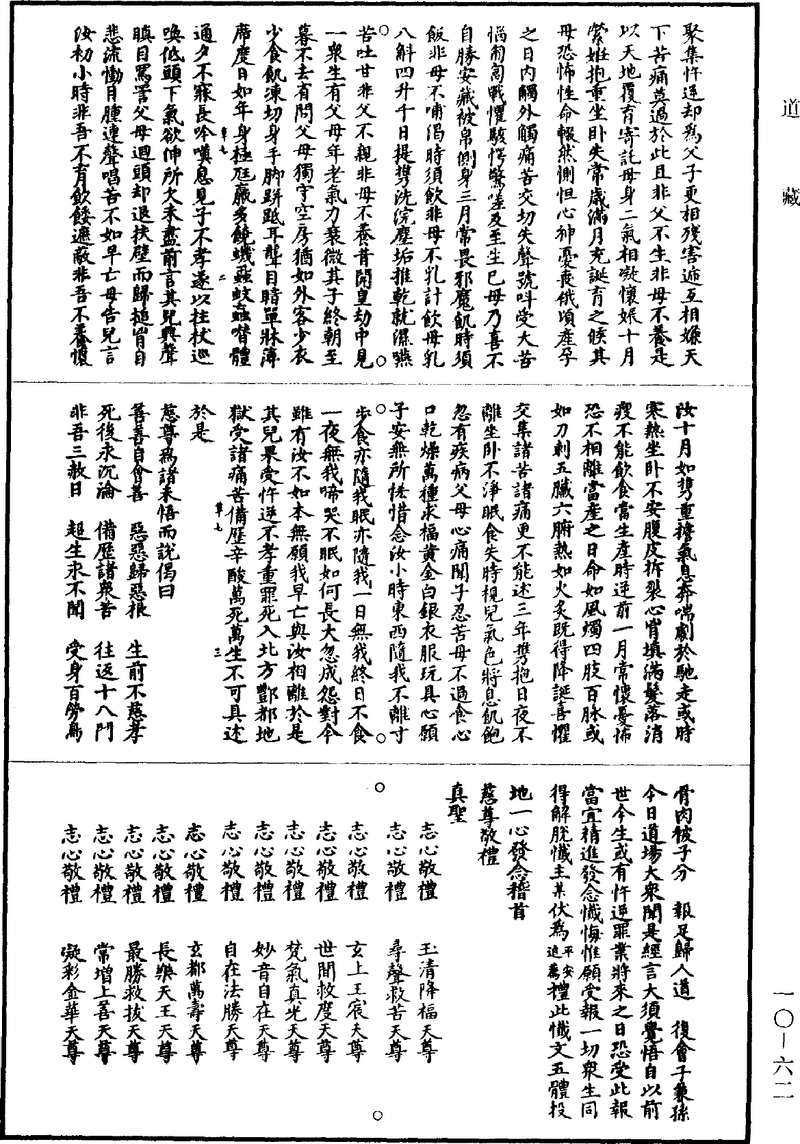 道藏
聚集忤逆却為父子更相殘害遞互相嫌天
下苦痛莫過於此且非父不生非母不養是
以天地覆育寄託母身二氣相凝懷娠十月
縈姙抱重坐卧失常歲滿月充誕育之候其
母恐怖性命輙然惻怛心神憂喪俄頃產孕
之日內觸外觸痛苦交切失聲號呌受大苦
惱匍匐戰懼駭愕驚嗟及至生已母乃喜不
自勝安藏被帛側身三月常畏邪魔飢時須
飯非母不哺渴時須飲非母不乳計飲母乳
八斛四升千日提攜洗浣塵垢推乾就濕嚥
苦吐甘非父不親非母不養昔開皇劫中見
一衆生有父母年老氣力衰微其子終朝至
暮不去省問父母獨守空房猶如外客少衣
少食飢凍切身手脚跰胝耳聾目暗單牀薄
席度日如年身極尫羸多饒蟣蝨蚊蝱噆體
通夕不寐長吟嘆息見子不孝遂以柱杖巡
喚低頭下氣欲伸所欠未盡前言其兒興聲
瞋目罵詈父母迴頭却退扶壁而歸搥胷自
悲流慟目腫連聲唱苦不如早亡母告兒言
汝初小時非吾不育飲餧遮蔽非吾不養懷
草七
二
汝十月如擕重擔氣息奔喘劇於馳走或時
寒熱坐卧不安腹皮拆裂心胷填滿髮落消
瘦不能飲食當生產時逆前一月常懷憂怖
恐不相離當產之日命如風燭四肢百脉或
如刀刺五臟六腑熱如火炙既得降誕喜懼
交集諸苦諸痛更不能述三年擕抱日夜不
離坐卧不淨眠食失時視兒氣色將息飢飽
忽有疾病父母心痛聞子忍苦母不過食心
口乾燥萬種求福黃金白銀衣服玩具心願
子安無所恡惜念汝小時東西隨我不離寸
步食亦隨我眠亦隨我一日無我終日不食
一夜無我啼哭不眠如何長大忽成怨對今
雖有汝不如本無願我早亡與汝相離於是
其兒果受忤逆不孝重罪死入北方酆都地
獄受諸痛苦備歷辛酸萬死萬生不可具述
草七
三
於是
慈尊為諸未悟而說偈曰
善善自會善　惡惡歸惡根　生前不慈孝
死後永沉淪　備歷諸衆苦　往返十八門
非吾三赦日　超生永不聞　受身百勞鳥
骨肉被子分　報足歸人道　復會子兼孫
今日道場大衆聞是經言大須覺悟自以前
世今生或有忤逆罪業將來之日恐受此報
當宜精進發念懺悔惟願受報一切衆生同
得解脫懺主某伏為平安追薦禮此懺文五體投
地一心發念稽首
慈尊敬禮
真聖
志心敬禮　玉清降福天尊
志心敬禮　尋聲救苦天尊
志心敬禮　玄上玉宸天尊
志心敬禮　世間救度天尊
志心敬禮　梵氣真光天尊
志心敬禮　妙音自在天尊
志心敬禮　自在法勝天尊
志心敬禮　玄都萬壽天尊
志心敬禮　長樂天王天尊
志心敬禮　最勝救拔天尊
志心敬禮　常增上善天尊
志心敬禮　凝彩金華天尊
一〇－六二